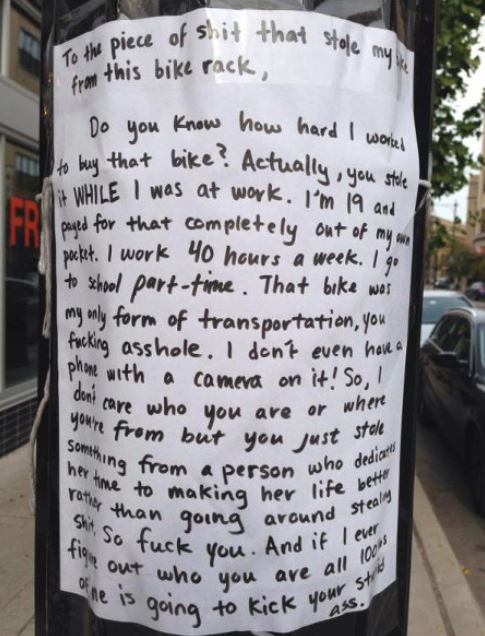 To the piece of shit that stole my bike
from this bike rack,
Do you know how hard I worked
to buy that bike? Actually, you stole
it WHILE I was at work. I'm 19 and
payed for that completely out of my own
pocket. I work 40 hours a week. I go
to school part-time. That bike was
my only form of transportation, you
fucking asshole. I don't even have a
phone with a camera on it! So, I
don't care who you are or where
you're from but you just stole
something from a person who dedicates
her time to making her life better
rather than going around stealing
shit. So fuck you. And if I ever
figure out who you are all 100 lbs
of me is going to kick your stupid
ass.
FR